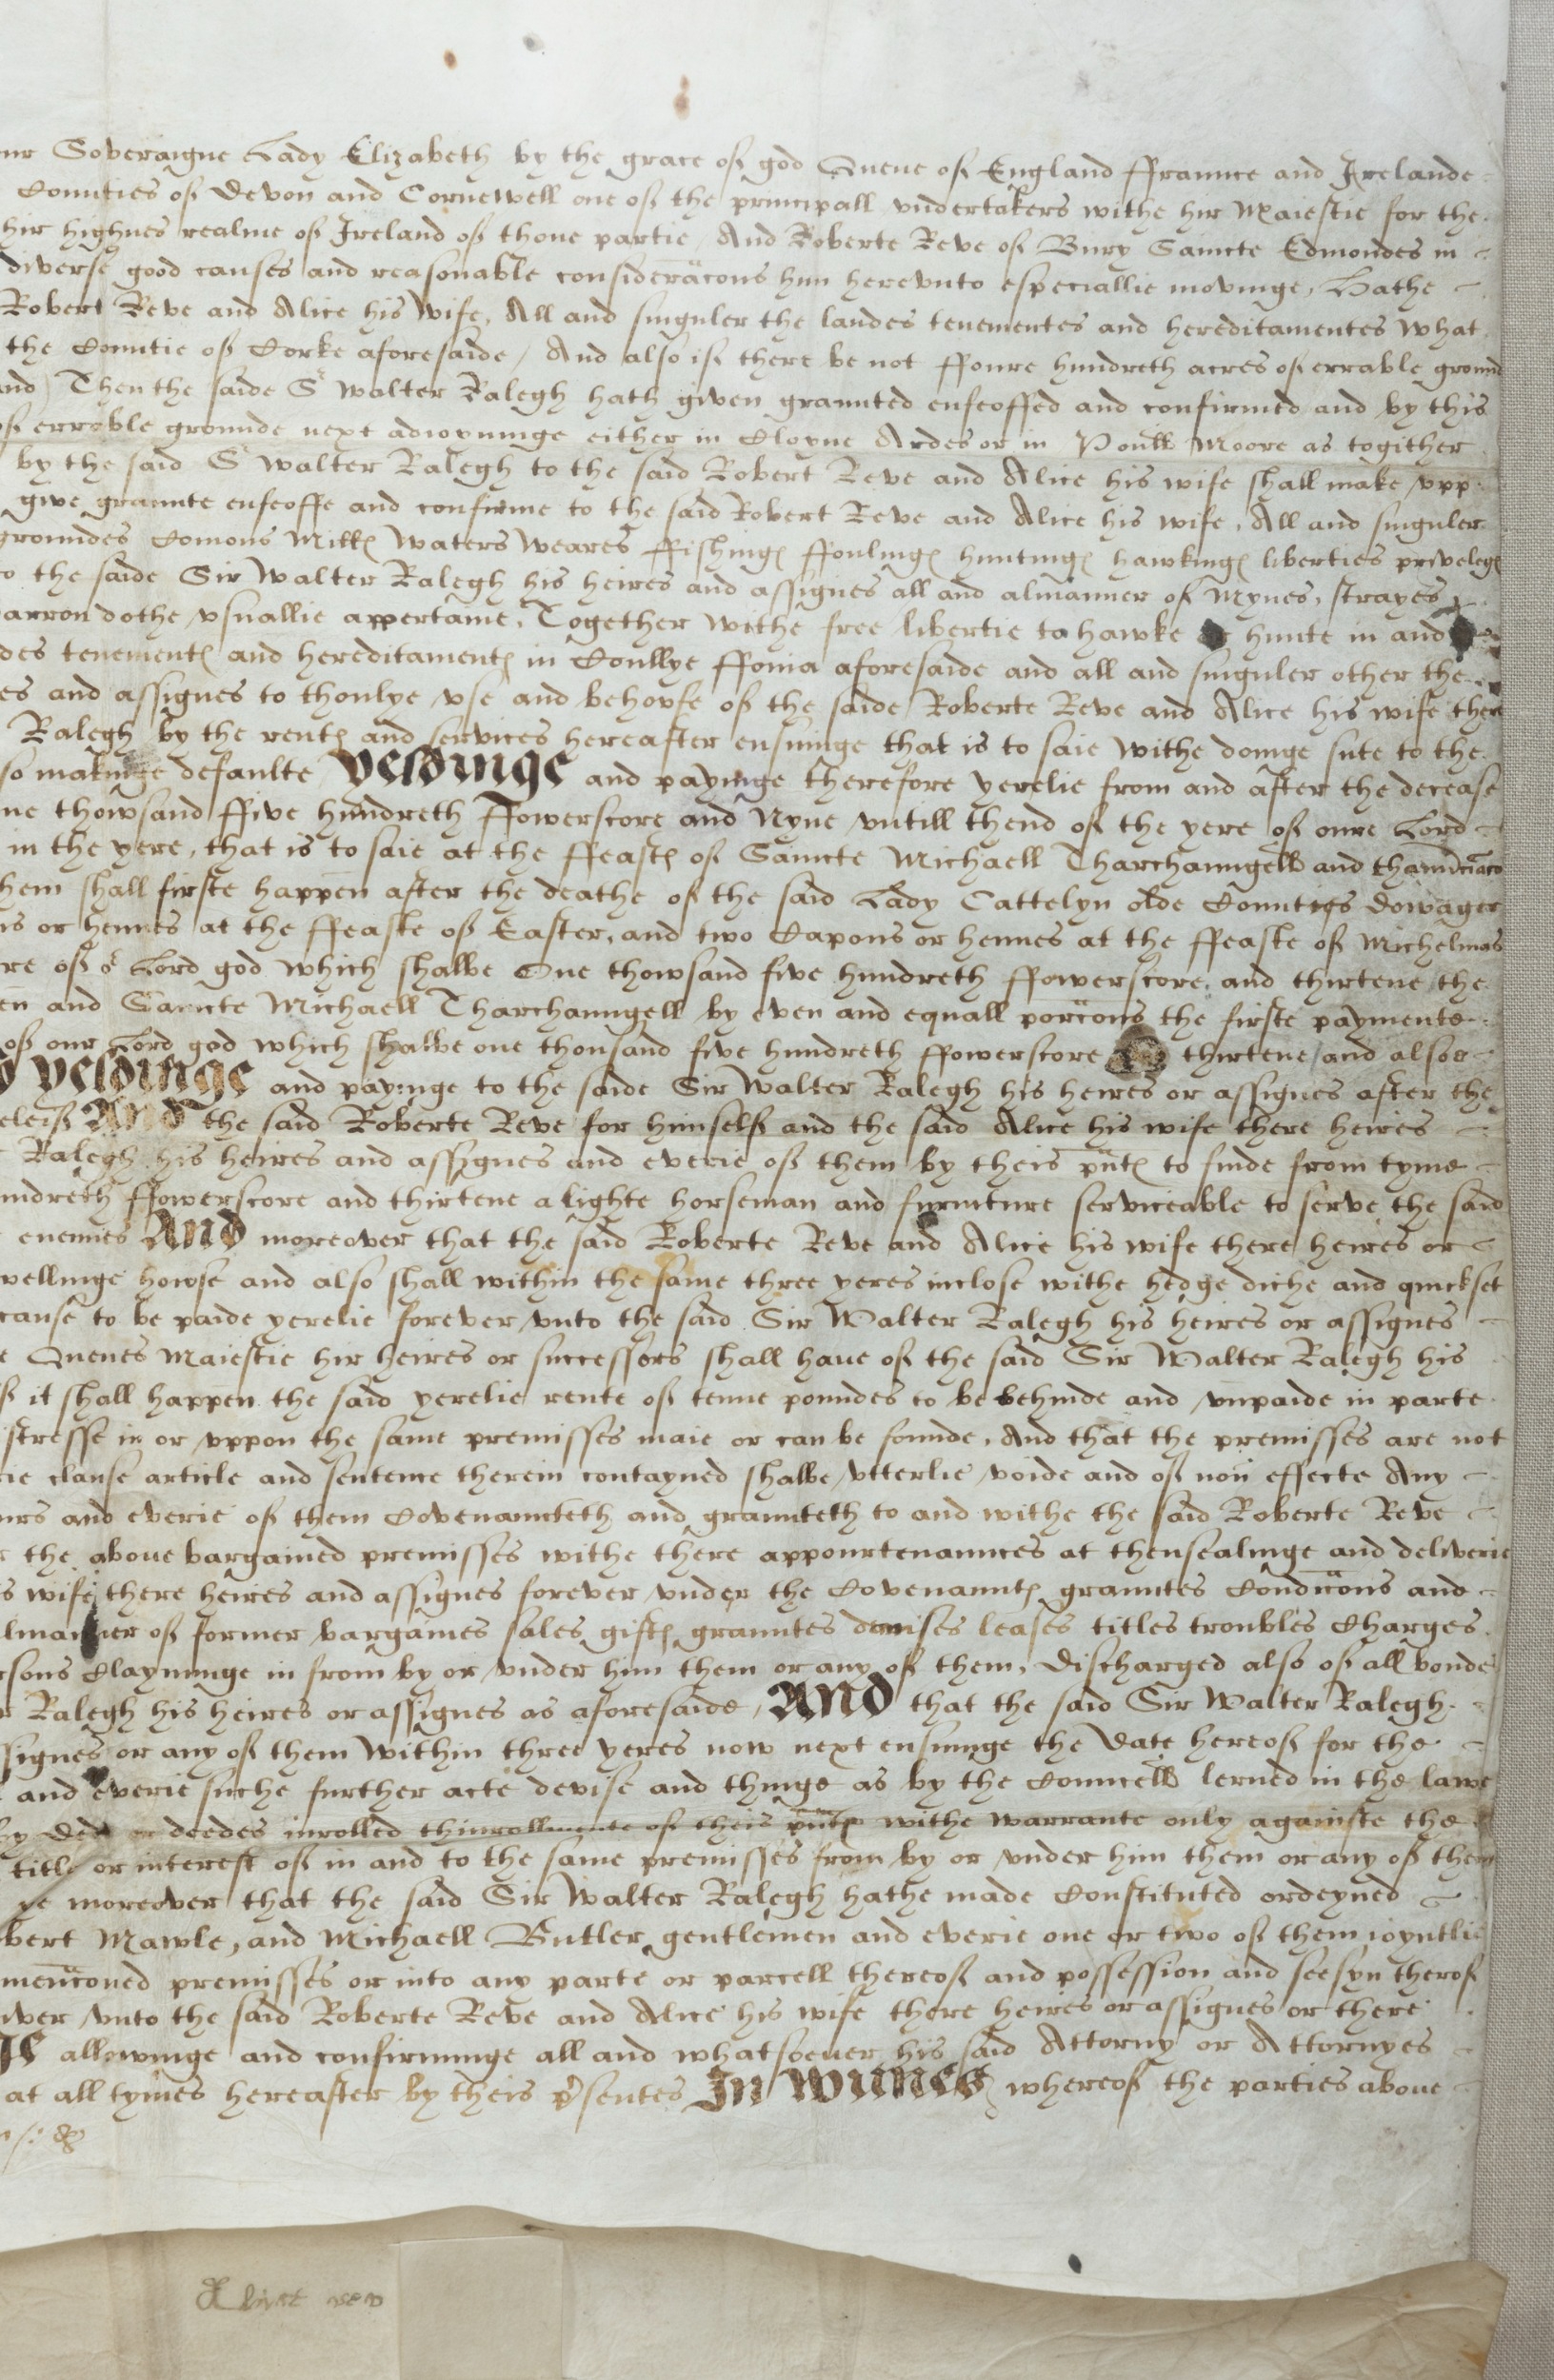 nr Soveraigne Lady Elizabeth by the grace of god Quene of England ffraunce and Irelande
Counties of Devon and Cornewell one of the principall vndertakers withe hir Maiestie for the
hir highnes realme of Ireland of thone partie / And Roberte Reve of Bury Saincte Edmondes in
diverse good causes and reasonable consideracons him herevnto especiallie movinge, Hathe
Robert Reve and Alice his wife, All and singuler the landes tenementes and hereditamentes what
the Countie of Corke aforesaide / And also if there be not ffoure hundreth acres of errable ground
and) Then the saide Sr Walter Ralegh hath given graunted enfeoffed and confirmed and by this
of errable grounde next adioyninge either in Cloyne Ardes or in Moore as togither
by the said Sr Walter Ralegh to the said Robert Reve and Alice his wife shall make vpp
give graunte enfeoffe and confirme to the said Robert Reve and Alice his wife, All and singuler
groundes Comons Mill Waters Weares ffishing ffouling hunting hawking liberties priveleg
o the saide Sir Walter Ralegh his heires and assignes all and almanner of Mynes, strayes
arron dothe vsuallie appertaine, Together withe free libertie to hawke hunte in and
des tenement and hereditament in Coullye ffonia aforesaide and all and singuler other the
es and assignes to thonlye vse and behoufe of the saide Roberte Reve and Alice his wife there
Ralegh by the rent and services hereafter ensuinge that is to saie withe doinge sute to the
so makinge defaulte Yeldinge and payinge therefore yerelie from and after the decease
ne thowsand ffive hundreth ffowerscore and Nyne vntill thend of the yere of oure Lord
in the yere, that is to saie at the ffeast of Saincte Michaell Tharchaungell and
hem shall firste happen after the deathe of the said Lady Cattelyn olde Counties dowager
ns or hennes at the ffeaste of Easter, and two Capons or hennes at the ffeaste of Michelmas
re of or Lord god which shalbe One thowsand five hundreth ffowerscore, and thirtene the
en and Saincte Michaell Tharchaungell by even and equall porcons the firste paymente
of our Lord god which shalbe one thousand five hundreth ffowerscore thirtene / and also
Yeldinge and payinge to the saide Sir Walter Ralegh his heires or assignes after the
releif And the said Roberte Reve for himself and the said Alice his wife there heires
Ralegh his heires and assignes and everie of them by theis pnt to finde from tyme
undreth ffowerscore and thirtene a lighte horseman and furniture serviceable to serve the said
enemies And moreover that the said Roberte Reve and Alice his wife there heires or
wellinge howse and also shall within the same three yeres inclose withe hedge diche and quickset
cause to be paide yerelie forever vnto the said Sir Walter Ralegh his heires or assignes
e Quenes Maiestie hir heires or successors shall haue of the said Sir Walter Ralegh his
if it shall happen the said yerelie rente of tenne poundes to be behinde and vnpaide in parte
istresse in or vppon the same premisses maie or can be founde, And that the premisses are not
rie clause article and sentence therein contayned shalbe vtterlie voide and of non effecte Any
urs and everie of them Covenaunteth and graunteth to and withe the said Roberte Reve
r the aboue bargained premisses withe there appourtenaunces at thensealinge and deliverie
s wife there heires and assignes forever vnder the Covenaunt grauntes Condicons and
lmanner of former bargaines sales gift grauntes demises leases titles troubles Charges
rsons Clayminge in from by or vnder him them or any of them, Discharged also of all bonde
r Ralegh his heires or assignes as aforesaide, And that the said Sir Walter Ralegh
ssignes or any of them Within three yeres now next ensuinge the Date hereof for the
and everie suche further acte devise and thinge as by the Councell lerned in the lawe
by ded or deedes inrolled thinrollmente of theis pnt withe warrante only againste the
title or interest of in and to the same premisses from by or vnder him them or any of them
ye moreover that the said Sir Walter Ralegh hathe made Constituted ordeyned
bert Mawle, and Michaell Butler gentlemen and everie one or two of them ioyntlie
menconed premisses or into any parte or parcell thereof and possession and seesyn therof
iver vnto the said Roberte Reve and Alice his wife there heires or assignes or there
allowinge and confirminge all and whatsoeuer his said Attorny or Attornyes
at all tymes hereafter by theis psentes In Witnes whereof the parties aboue